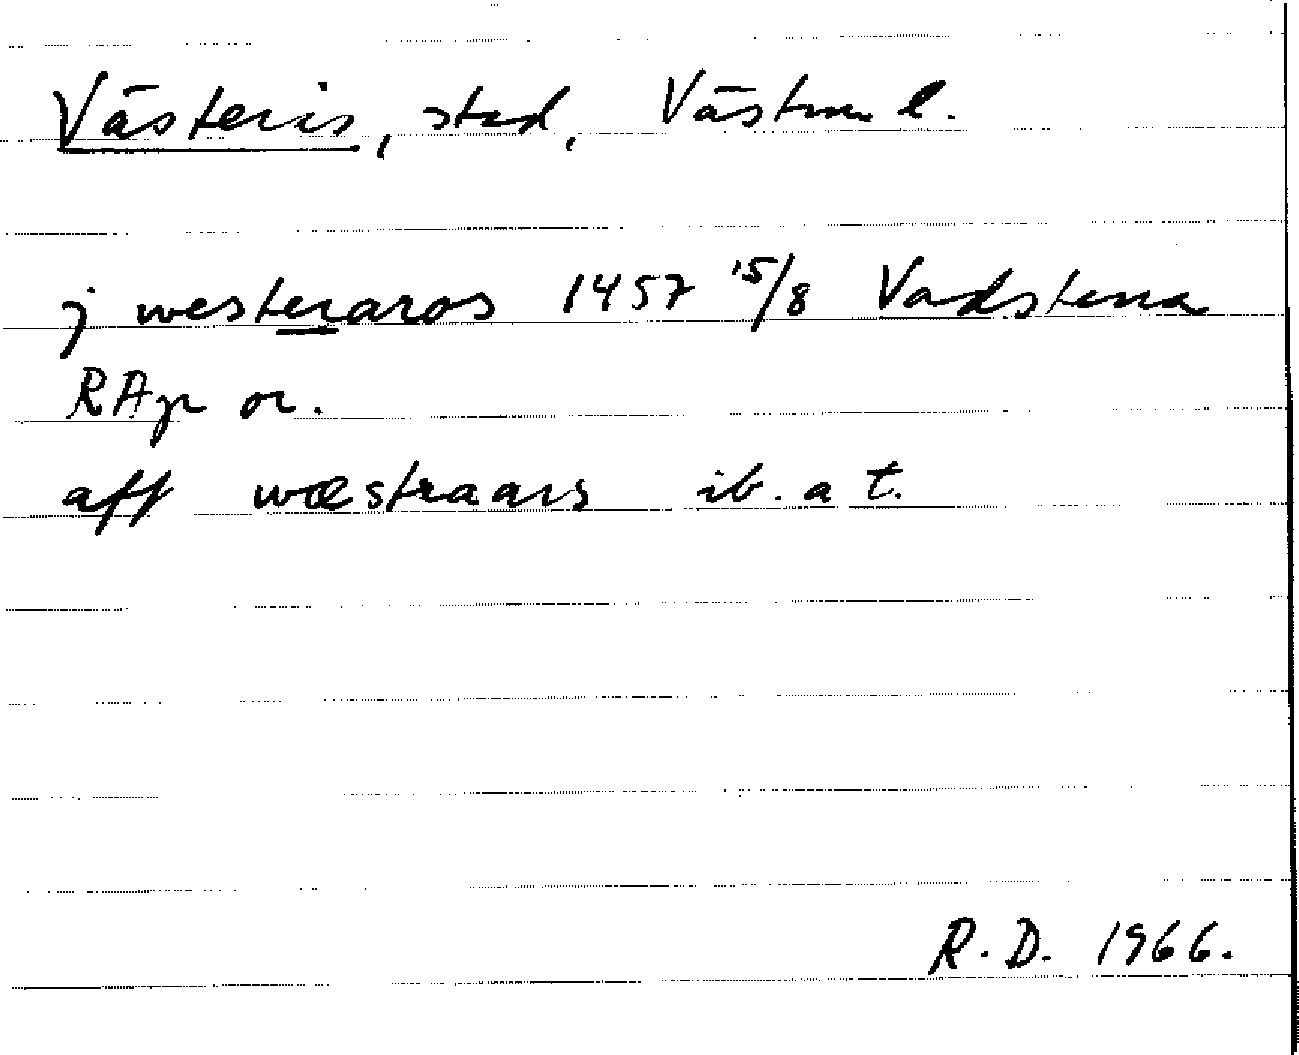 Västerås, stad, Västm. l.
j westeraros 1457 15/8 Vadstena
RAp or.
aff wæstraars ib. a t.
R.D. 1966.